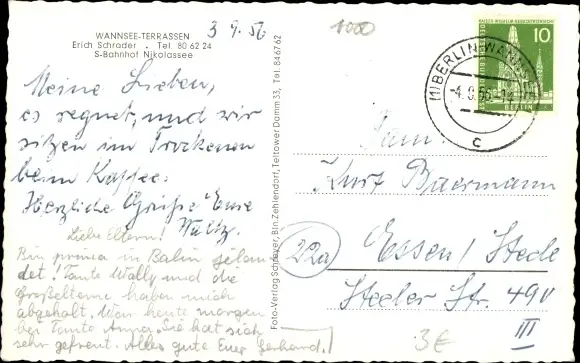 WANNSEE-TERRASSEN
Erich Schrader . Tel. 80 62 24
S-Bahnhof Nikolassee
3 9. 56
1000
Meine Lieben,
es regnet, und wir
sitzen im Trockenen
beim Kaffee.
Herzliche Grüße Eure
Liebe Eltern!
Bin prima in Balin gelan
det! Tante Wally und die
Großeltern haben mich
abgeholt. War heute morgen
bei Tante Anna. Sie hat sich
sehr gefreut. Alles gute Euer Gerhard.
Foto-Verlag Schreyer, Bln.Zehlendorf, Teltower Damm 33, Tel. 84 67 62
10
BERLIN
(1) BERLIN-WANNSEE
-4.9.56-14
c
Fam.
Kurt Buermann
22a
Essen / Steele
Steeler Str. 491
III
3€